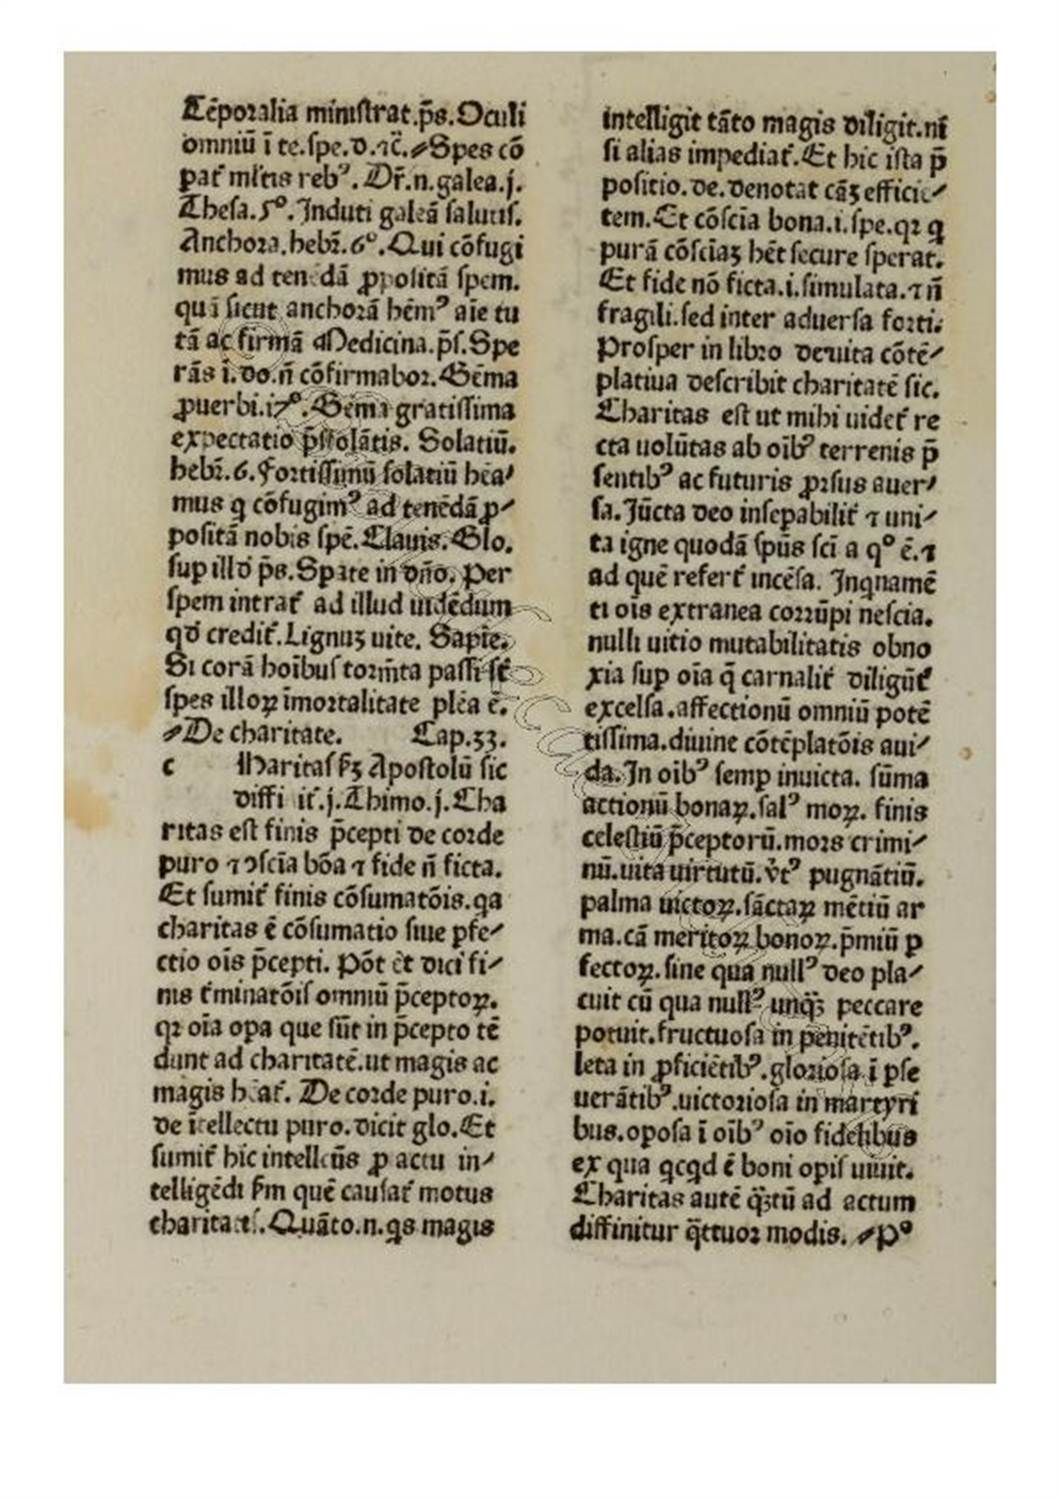 Tēporalia ministrat.p̄s.Oculi
omniū ī te.spe.d.⁊c̄.Spes cō
pat᷑ ml̓tis reb⁹.Dr̄.n.galea.j.
Thesa.5°.Induti galeā salutis.
Anchora.hebr̄.6°.Qui cōfugi
mus ad tenēdā ꝓpositā spem.
quā sicut anchorā hēm⁹ aīe tu
tā ac firmā Medicina.p̄s.Spe
rās ī.do.n̄ cōfirmabor.Gēma
ꝓuerbi.i7°.Gēma gratissima
expectatio p̄stolātis. Solatiū.
hebr̄.6.Fortissimū solatiū hēa⸗
mus q cōfugim⁹ ad tenēdā ꝓ⸗
positā nobis spē.Clauis.Glo.
sup illd̓ p̄s.Spate in dn̄o. Per
spem intrat᷑ ad illud uidēdum
qd̓ credit᷑.Lignuꝫ uite. Sapīe.
Si corā hoībus torm̄ta passi st̄
spes illoꝝ īmortalitate plēa ē.
De charitate. Cap.33.
c Haritas ẜꝫ Apostolū sic
diffinit᷑.j.Thimo.j.Cha
ritas est finis p̄cepti de corde
puro ⁊ ꝯscīa bōa ⁊ fide n̄ ficta.
Et sumit᷑ finis cōsumatōis.qa
charitas ē cōsumatio siue pfe⸗
ctio oīs p̄cepti. Pōt ēt dici fi⸗
nis t᷑minatōis omniū p̄ceptoꝝ.
qꝛ oīa opa que sūt in p̄cepto tē
dunt ad charitatē.ut magis ac
magis hēat᷑. De corde puro.i.
de ītellectu puro.dicit glo.Et
sumit᷑ hic intellcūs ꝓ actu in⸗
telligēdi ẜm quē causat᷑ motus
charitatis.Quāto.n.qs magis
intelligit tāto magis diligit.nī
si alias impediat᷑.Et hic ista p̄
positio.de.denotat cāꝫ efficiē⸗
tem.Et cōscīa bona.i.spe.qꝛ q
purā cōscīaꝫ hēt secure sperat.
Et fide nō ficta.i.simulata.⁊ n̄
fragili.sed inter aduersa forti.
Prosper in libro de uita cōtē⸗
platiua describit charitatē sic.
Charitas est ut mihi uidet᷑ re
cta uolūtas ab oīb⁹ terrenis p̄
sentib⁹ ac futuris ꝓrsus auer⸗
sa.Jūcta deo insepabilit᷑ ⁊ uni⸗
ta igne quodā spūs scī a q° ē.⁊
ad quē refert᷑ incēsa. Inqnamē
ti oīs extranea corrūpi nescia.
nulli uitio mutabilitatis obno
xia sup oīa q̄ carnalit᷑ diligūt᷑
excelsa.affectionū omniū potē
tissima.diuine cōtēplatōis aui⸗
da.In oīb⁹ semp inuicta. sūma
actionū bonaꝝ.sal⁹ moꝝ. finis
celestiū p̄ceptorū.mors crimi⸗
nū.uita uirtutū.v̓t⁹ pugnātiū.
palma uictoꝝ.sāctaꝝ mētiū ar
ma.cā meritoꝝ bonoꝝ.p̄miū p
fectoꝝ.sine qua null⁹ deo pla⸗
cuit cū qua null⁹ unq̄ꝫ peccare
potuit.fructuosa in penitētib⁹.
leta in ꝓficiētib⁹.gloriosa ī pse
uerātib⁹.uictoriosa in martyri
bus.oposa ī oīb⁹ oīo fidelibus
ex qua qcqd ē boni opis uiuit.
Charitas autē q̄ꝫtū ad actum
diffinitur q̄ttuor modis. P°